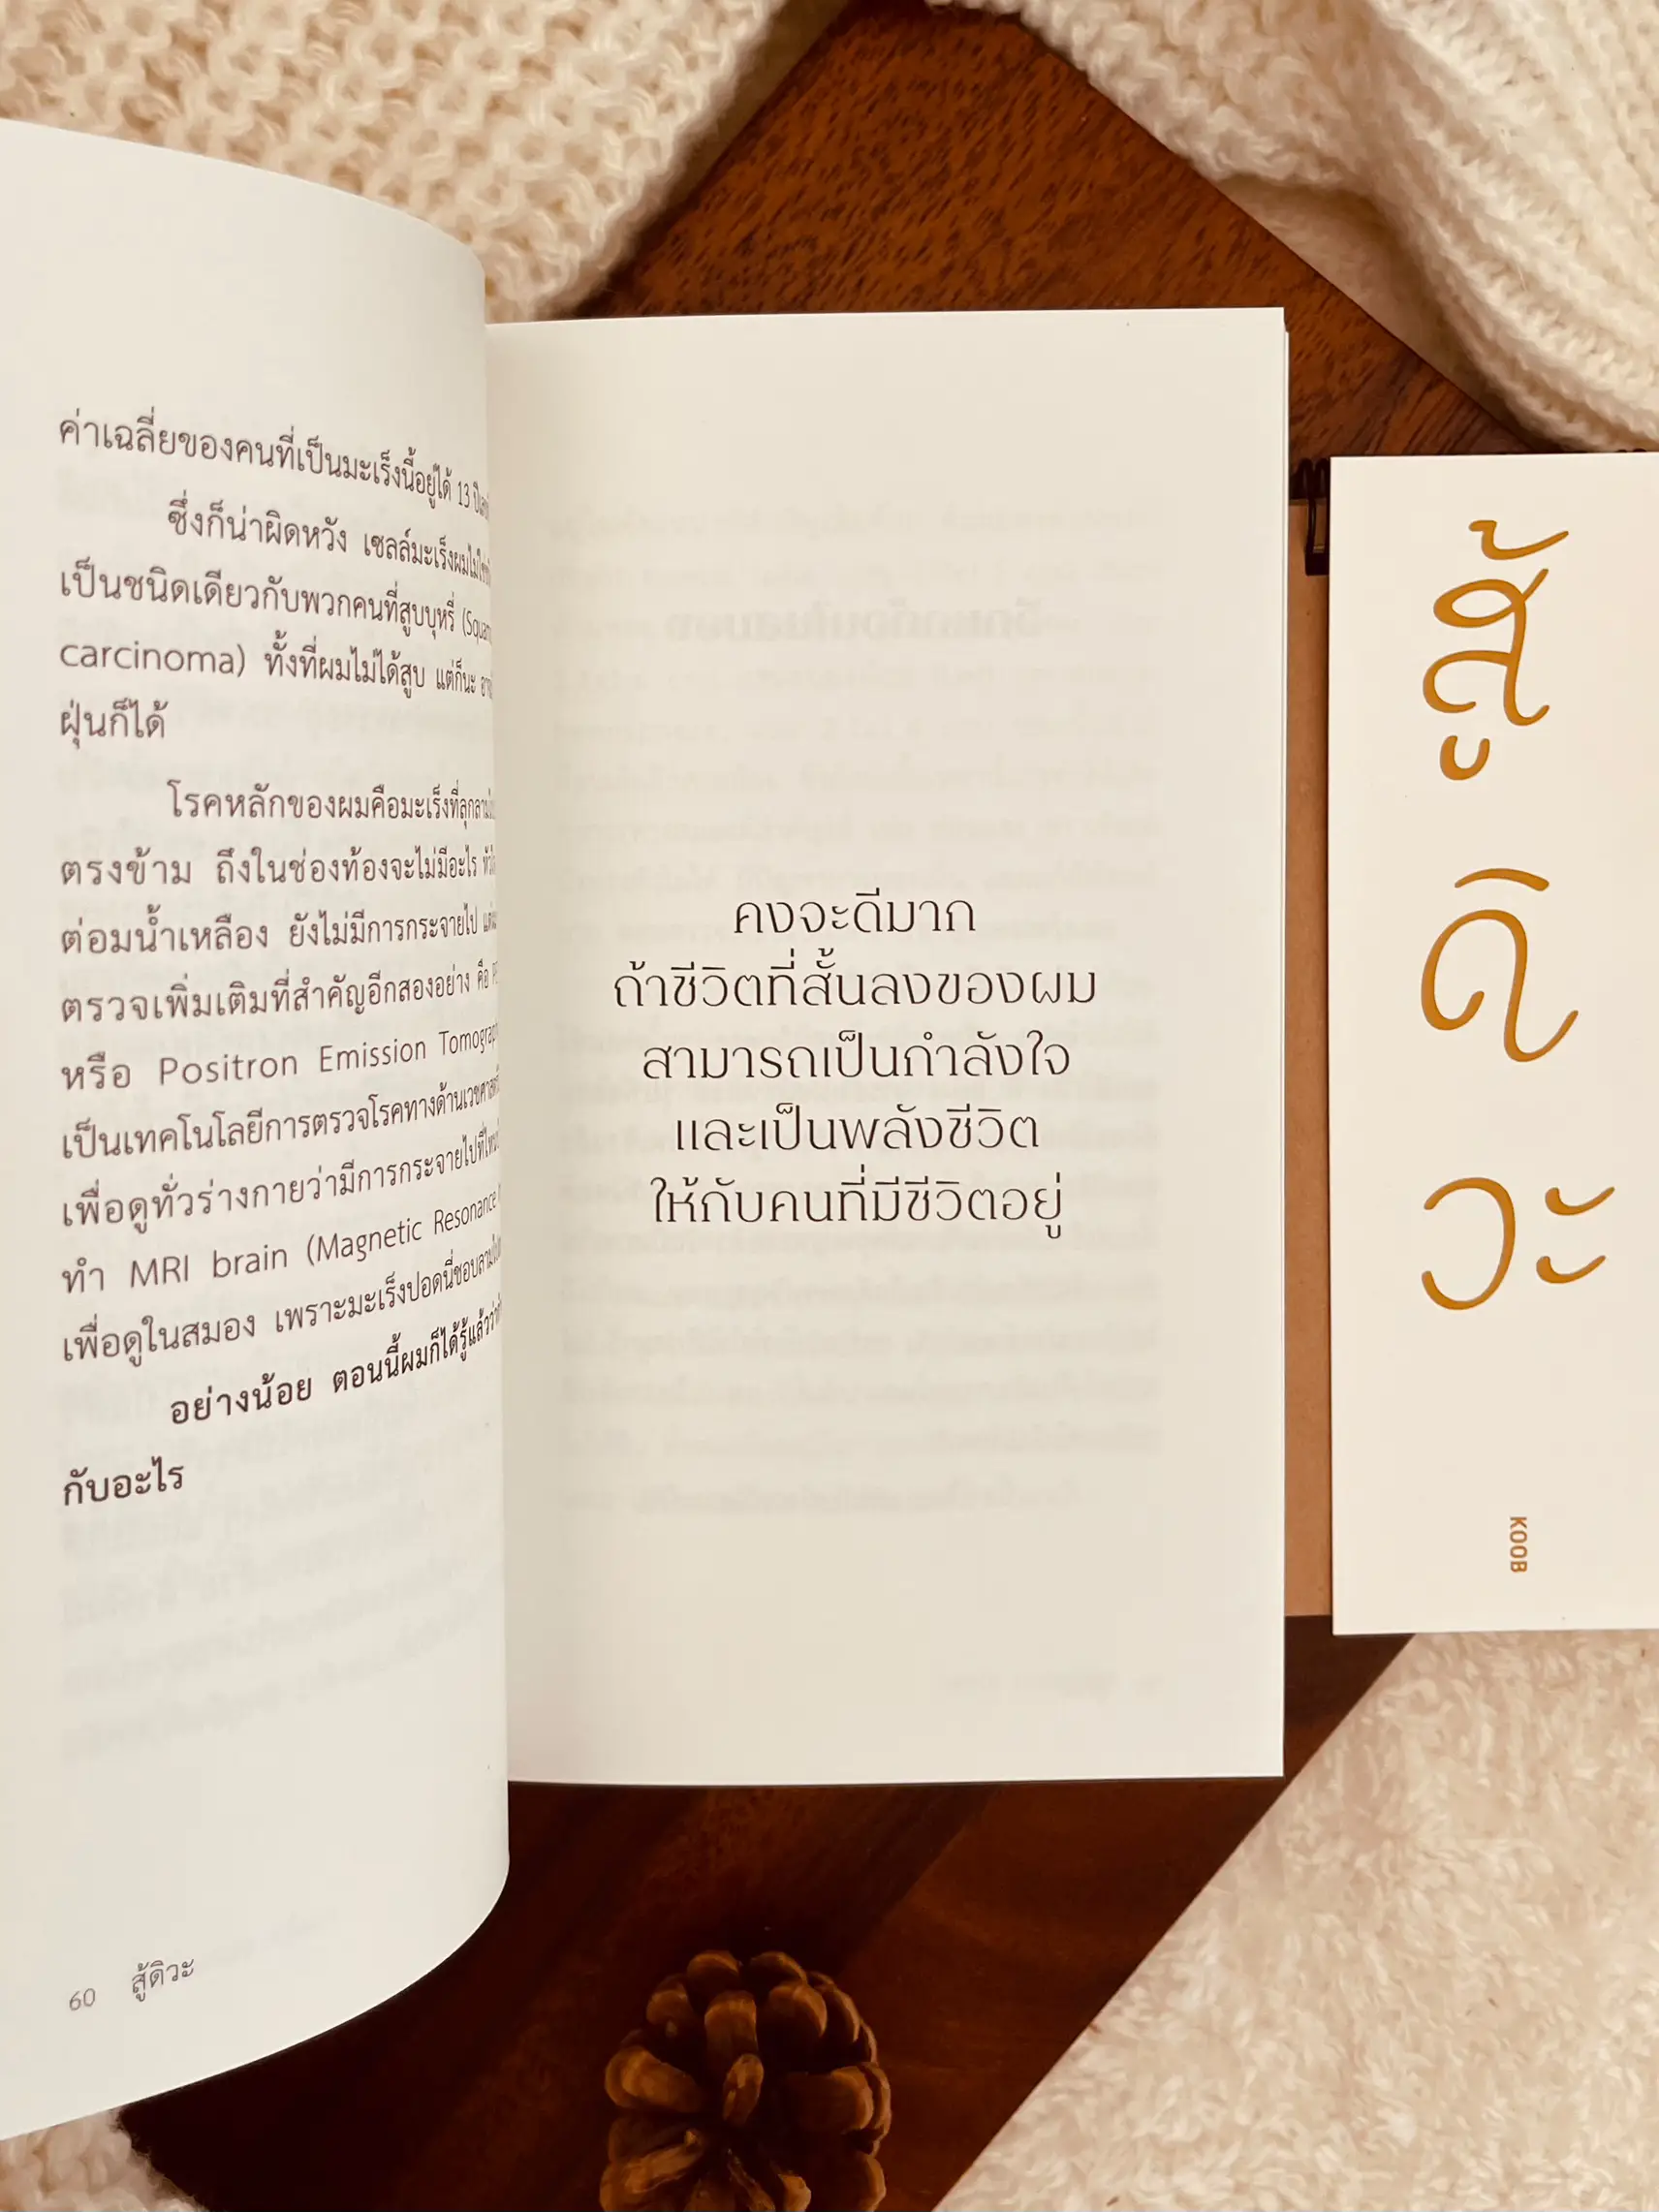 ค่าเฉลี่ยของคนที่เป็นมะเร็งนี้อยู่ได้ 13
ซึ่งก็น่าผิดหวัง เซลล์มะเร็งผมไม่ใช่
เป็นชนิดเดียวกับพวกคนที่สูบบุหรี่
carcinoma) ทั้งที่ผมไม่ได้สูบ แต่ก็นะ
ฝุ่นก็ได้
โรคหลักของผมคือมะเร็งที่ลุกลาม
ตรงข้าม ถึงในช่องท้องจะไม่มีอะไร
ต่อมน้ำเหลือง ยังไม่มีการกระจายไป
ตรวจเพิ่มเติมที่สำคัญอีกสองอย่าง คือ
หรือ Positron Emission
เป็นเทคโนโลยีการตรวจโรคทางด้าน
เพื่อดูทั่วร่างกายว่ามีการกระจายไปที่ไหน
ทำ MRI brain (Magnetic Resonance
เพื่อดูในสมอง เพราะมะเร็งปอดนี่ชอบลาม
อย่างน้อย ตอนนี้ผมก็ได้รู้แล้วว่า
กับอะไร
60 สู้ดิวะ
คงจะดีมาก
ถ้าชีวิตที่สั้นลงของผม
สามารถเป็นกำลังใจ
และเป็นพลังชีวิต
ให้กับคนที่มีชีวิตอยู่
สู้
ดิ
วะ
KOOB